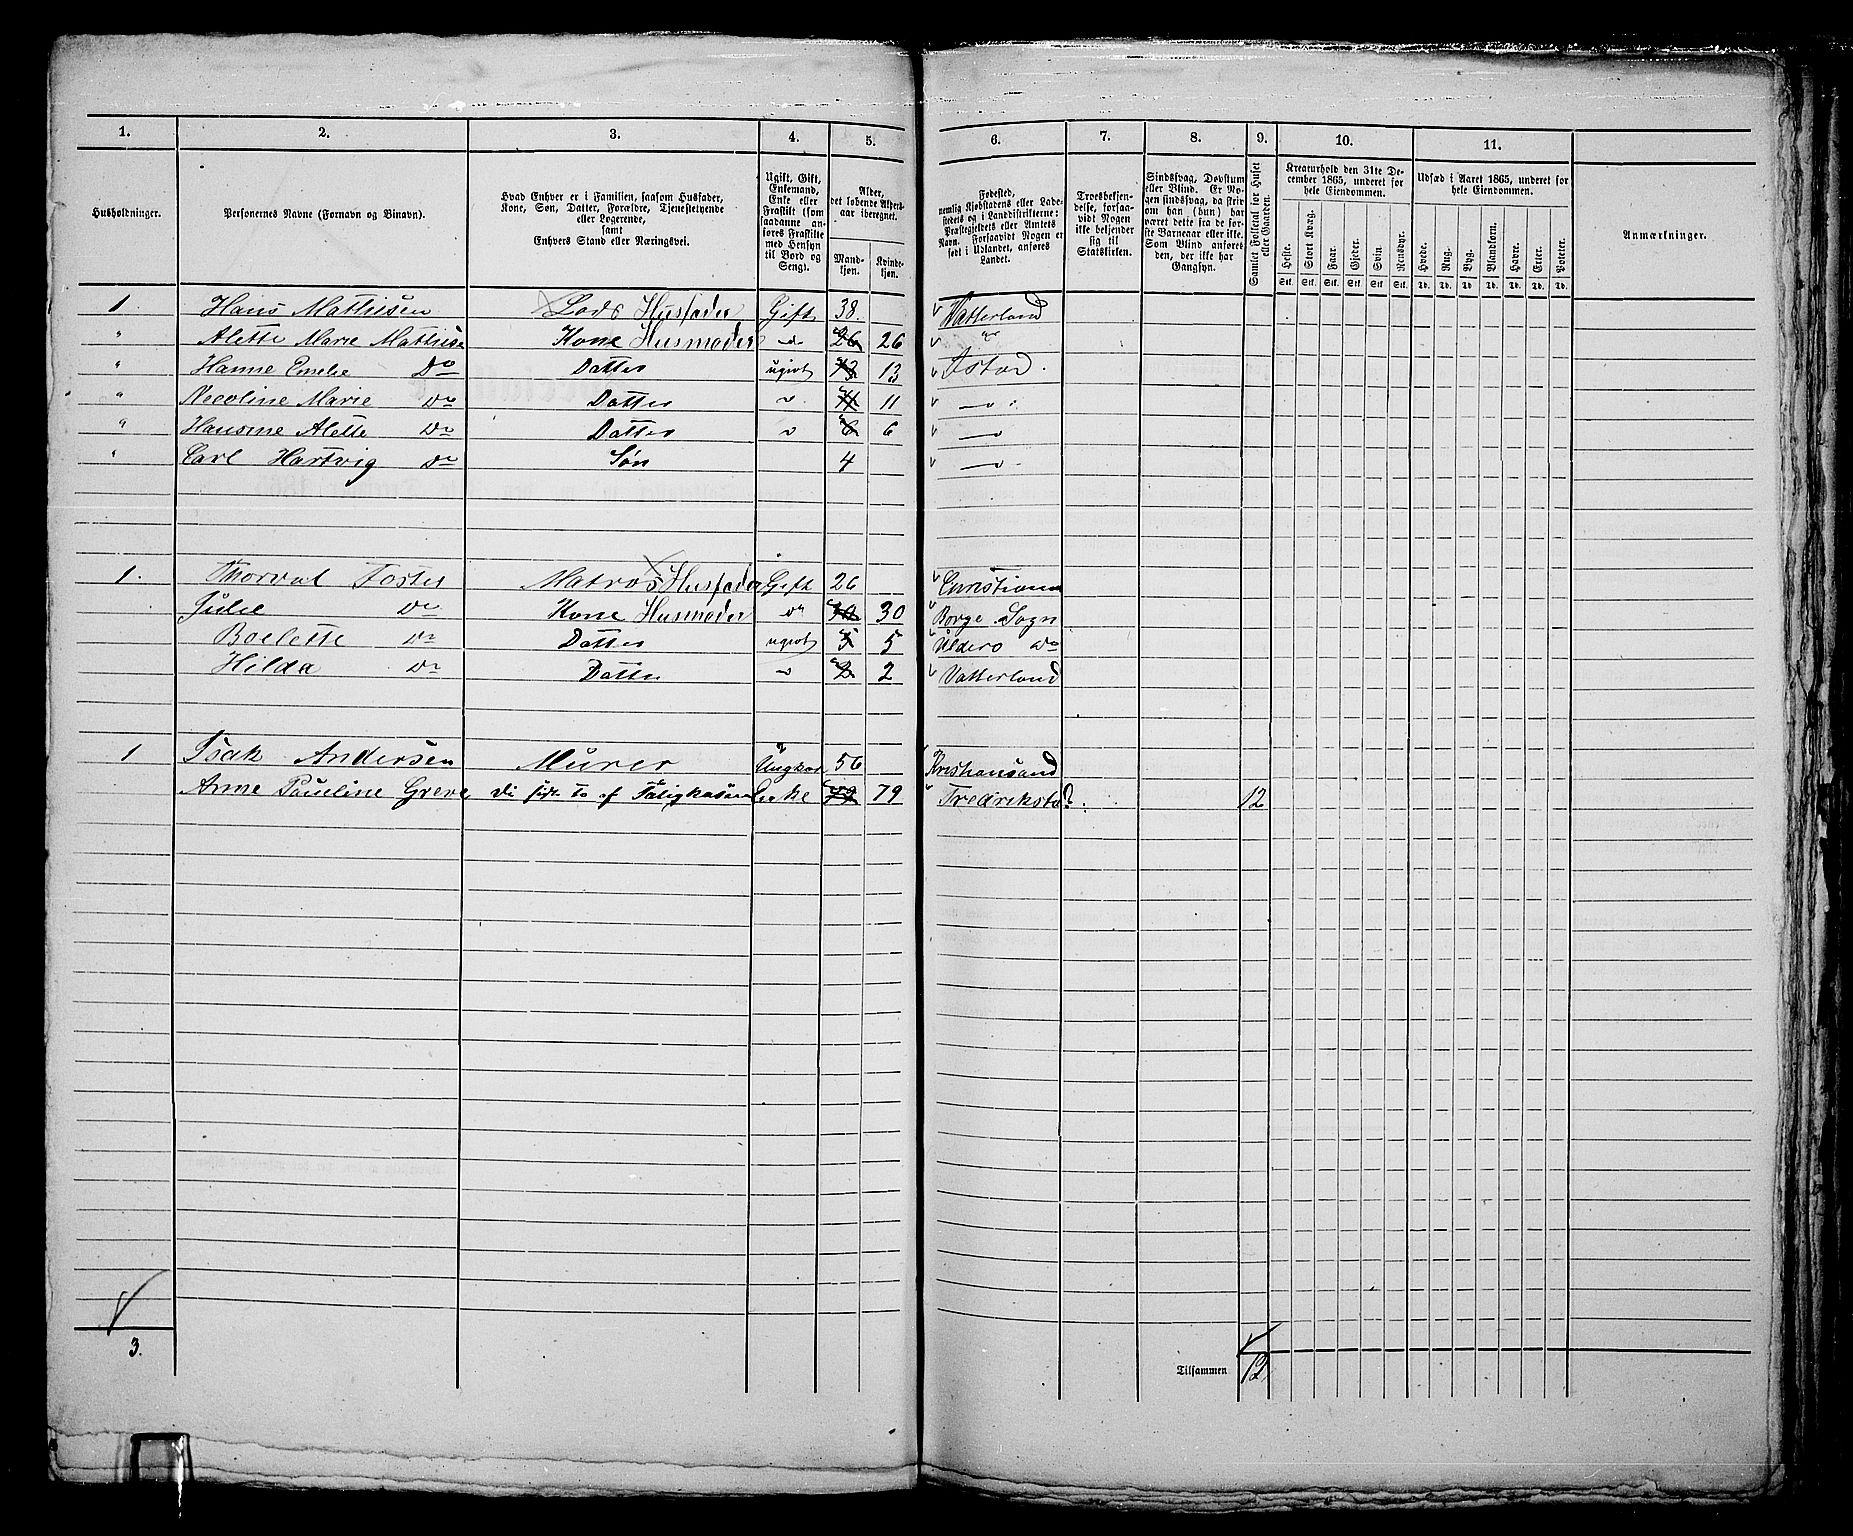 1. 2. 3. 4. 5. 6. 7. 8. 9. 10. 11.
Husholdninger.
Personernes Navne (Fornavn og Binavn).
Hvad Enhver er i Familien, saasom Husfader,
Kone, Søn, Datter, Forældre, Tjenestetyende
eller Logerende,
samt
Enhvers Stand eller Næringsvei.
Ugift, Gift,
Enkemand,
Enke eller
Fraskilt (som
saadanne an-
føres Fraskilte
med Hensyn
til Bord og
Seng).
Alder,
det løbende Alders-
aar iberegnet.
Mand-
kjøn.
Kvinde-
kjøn.
Fødested,
nemlig Kjøbstadens eller Lade-
stedets og i Landdistrikterne:
Præstegjeldets eller Amtets
Navn. Forsaavidt Nogen er
født i Udlandet, anføres
Landet.
Troesbekjen-
delse, forsaa-
vidt Nogen
ikke bekjender
sig til
Statskirken.
Sindssvag, Døvstum
eller Blind. Er No-
gen sindssvag, da skriv
om han (hun) har
været dette fra de før-
ste Barneaar eller ikke.
Som Blind anføres
den, der ikke har
Gangsyn.
Samlet Folketal for Huset
eller Gaarden.
Kreaturhold den 31te De-
cember 1865, underet for
hele Eiendommen.
Heste. Stort Kvæg. Faar. Gjeder. Svin Rensdyr.
Stk. Stk. Stk. Stk. Stk. Stk.
Udsæd i Aaret 1865, underet for
hele Eiendommen.
Hvede. Rug. Byg. Blandkorn. Havre. Erter. Poteter.
Td. Td. Td. Td. Td. Td. Td.
Anmærkninger.
1. Hans Mathisen Lods Husfader Gift 38. Vatterland
" Alette Marie Mathise Kone Husmoder do 26 26 "
" Hanne Emelie Do Datter ugivt 13 13
" Necoline Marie Do Datter 11 11
" Alette Do Datter 6 6
" Carl Hartvig Do Søn 4
1. Thorval Foster Matros Husfader Gift 26 Christiania
Julie Do Kone Husmoder do 30 30 Borge Sogn
Boelette Do Datter ugivt 5 5 Do
Hilda Do Datter 2 2 Vatterland
1 Isak Andersen Murer Ungkar 56 Kristiansand
Anne Pauline Greve af Enke 79 79 Fredrikstad 12
3.
Tilsammen 12